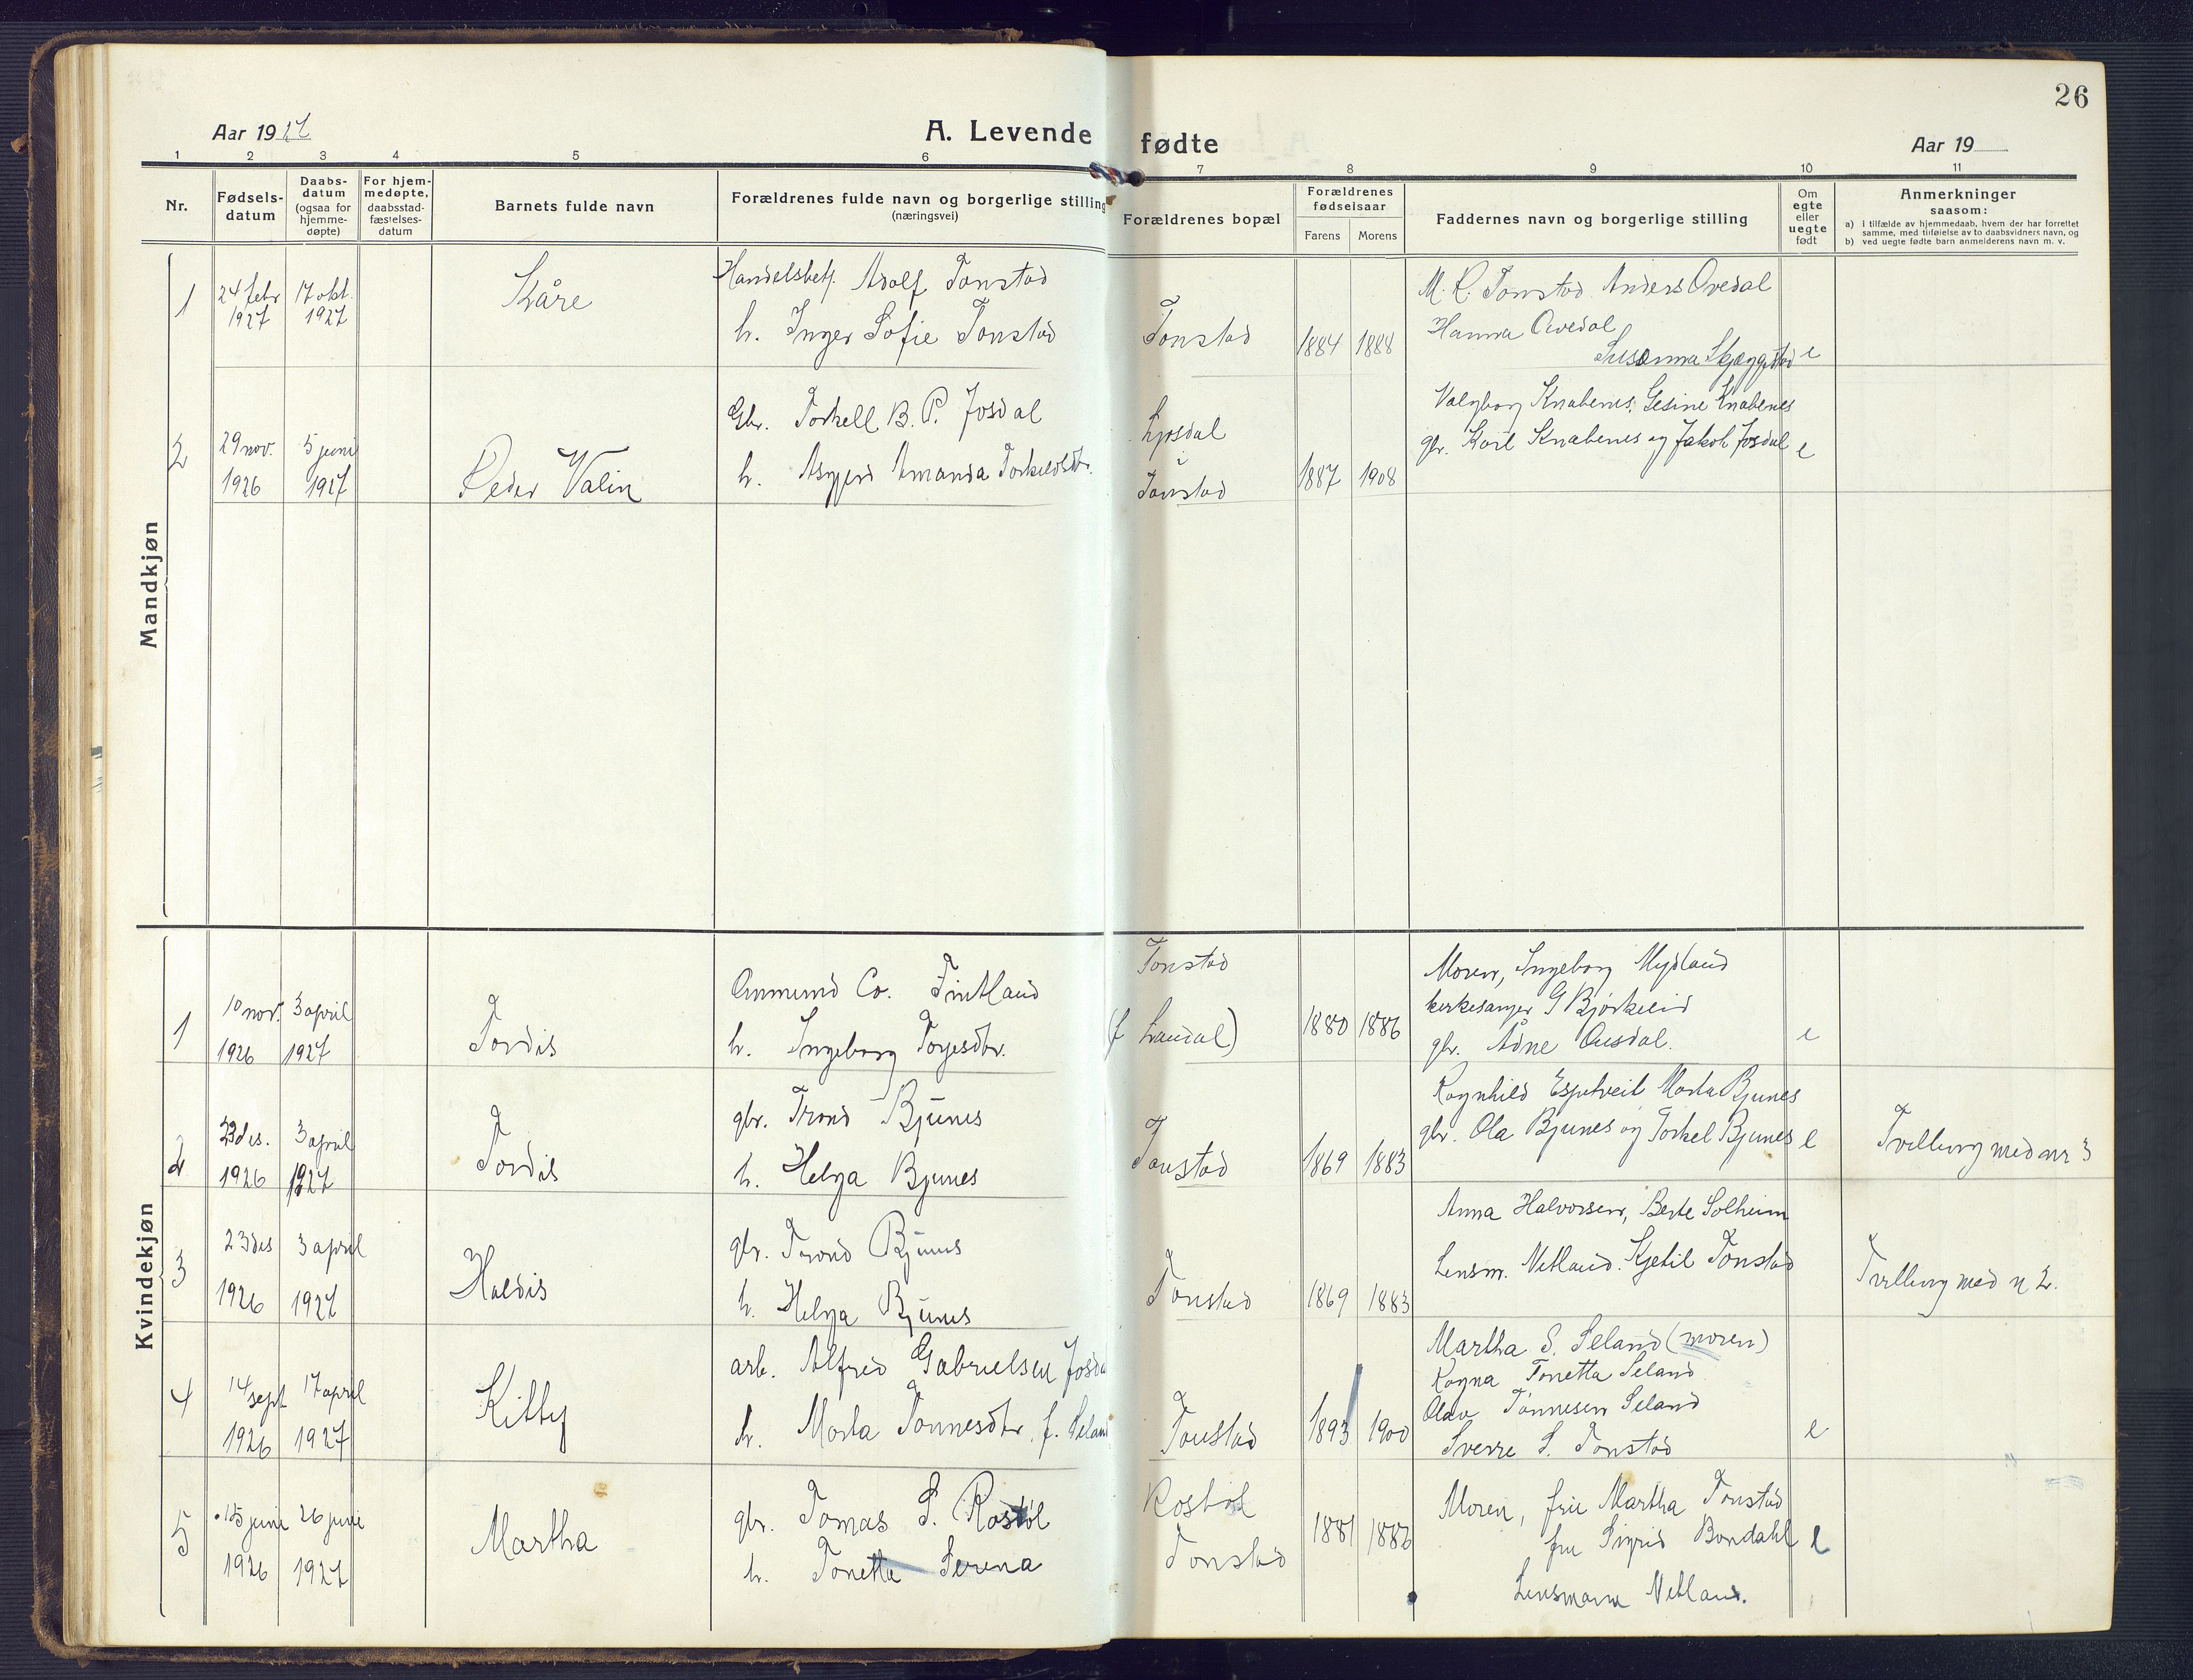 26
Aar 1927
A. Levende fødte
Aar 19
1 2 3 4 5 6 7 8 9 10 11
Nr.
Fødsels-
datum
Daabs-
datum
(ogsaa for
hjemme-
døpte)
For hjem-
medøpte,
daabsstad-
fæstelses-
datum
Barnets fulde navn
Forældrenes fulde navn og borgerlige stilling
(næringsvei)
Forældrenes bopæl
Forældrenes
fødselsaar
Farens Morens
Faddernes navn og borgerlige stilling
Om
egte
eller
uegte
født
Anmerkninger
saasom:
a) i tilfælde av hjemmedaab, hvem der har forrettet
samme, med tilføielse av to daabsvidners navn, og
b) ved uegte fødte barn anmelderens navn m. v.
Mandkjøn
1
24 febr
1927
17 okt.
1927
Kåre
Handelsbetj. Adolf Tonstad
h. Inger Sofie Tonstad
Tonstad
1884 1888
M. R. Tonstad Anders Ovedal
Hanna Ovedal
Susanna Skjæggestad
e
2
29 nov.
1926
5 juni
1927
Peder Valin
Gbr. Torkell B. P. Josdal
h. Asgjerd Amanda Torkeldsdtr.
Ljosdal
i
Tonstad
1887 1908
Valgborg Knabenes, Gesine Knabenes
gbr. Karl Knabenes og Jakob Josdal
e
Kvindekjøn
1
10 nov.
1926
3 april
1927
Tordis
Anmund Co. Fintland
h. Ingeborg Torjesdtr.
Tonstad
(f Laudal)
1880 1886
Moren, Ingeborg Mydland
kirkesanger G Bjørkeeid
gbr. Ådne Ousdal.
e
2
23 des.
1926
3 april
1927
Tordis
gbr. Trond Bjunes
h. Helga Bjunes
Tonstad
1869 1883
Ragnhild Espetveit Marta Bjunes
gbr. Ola Bjunes og Torkel Bjunes
e
Tvilling med nr 3
3
23 des
1926
3 april
1927
Haldis
gbr. Trond Bjunes
h. Helga Bjunes
Tonstad
1869 1883
Anna Halvorsen, Berte Solheim
Lensm. Netland. Kjetil Tonstad
Tvilling med n 2.
4
14 sept
1926
17 april
1927
Kitty
arb. Alfred Gabrielsen Josdal
h. Marta Tonnesdtr. f. Seland
Tonstad
1893 1900
Martha S. Seland (moren)
Ragna Tonetta Seland
Olav Tønnesen Seland
Sverre S. Tonstad
e
5
15 juni
1926
26 juni
1927
Martha
gbr. Tomas S. Rostøl
h. Tonetta Serena
Rostøl
Tonstad
1881 1886
Moren, fru Martha Tonstad
fru Sigrid Bondahl
Lensmann Netland.
e